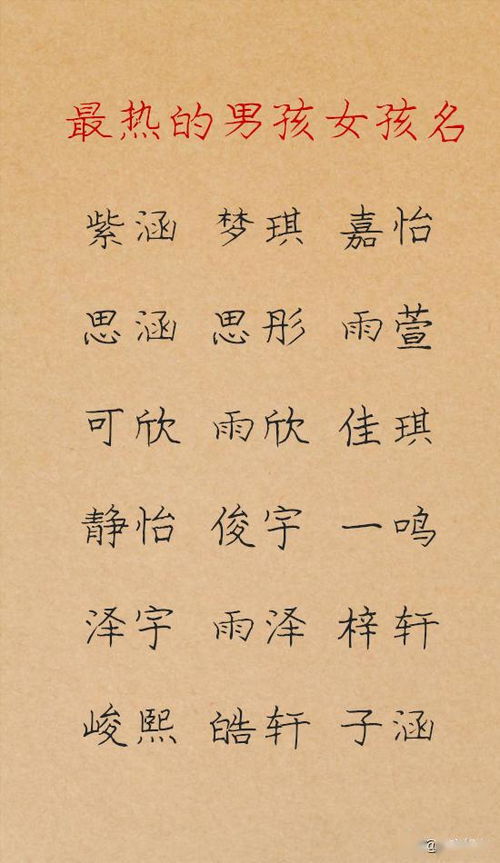 最热的男孩女孩名
紫涵 梦琪 嘉怡
思涵 思彤 雨萱
可欣 雨欣 佳琪
静怡 俊宇 一鸣
泽宇 雨泽 梓轩
峻熙 皓轩 子涵